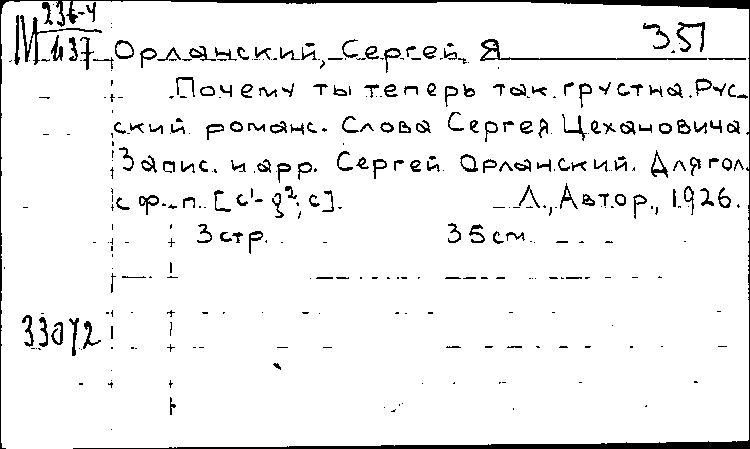 М 236-4
437
З.51
Орланский, Сергей, Я
Почему ты теперь так грустна. Рус-
ский романс. Слова Сергея Цехановича.
Запис. и арр. Сергей Орланский. Для гол.
с ф.-п. [c¹-g²; c]. Л., Автор, 1926.
3 стр. 35 см.
33072